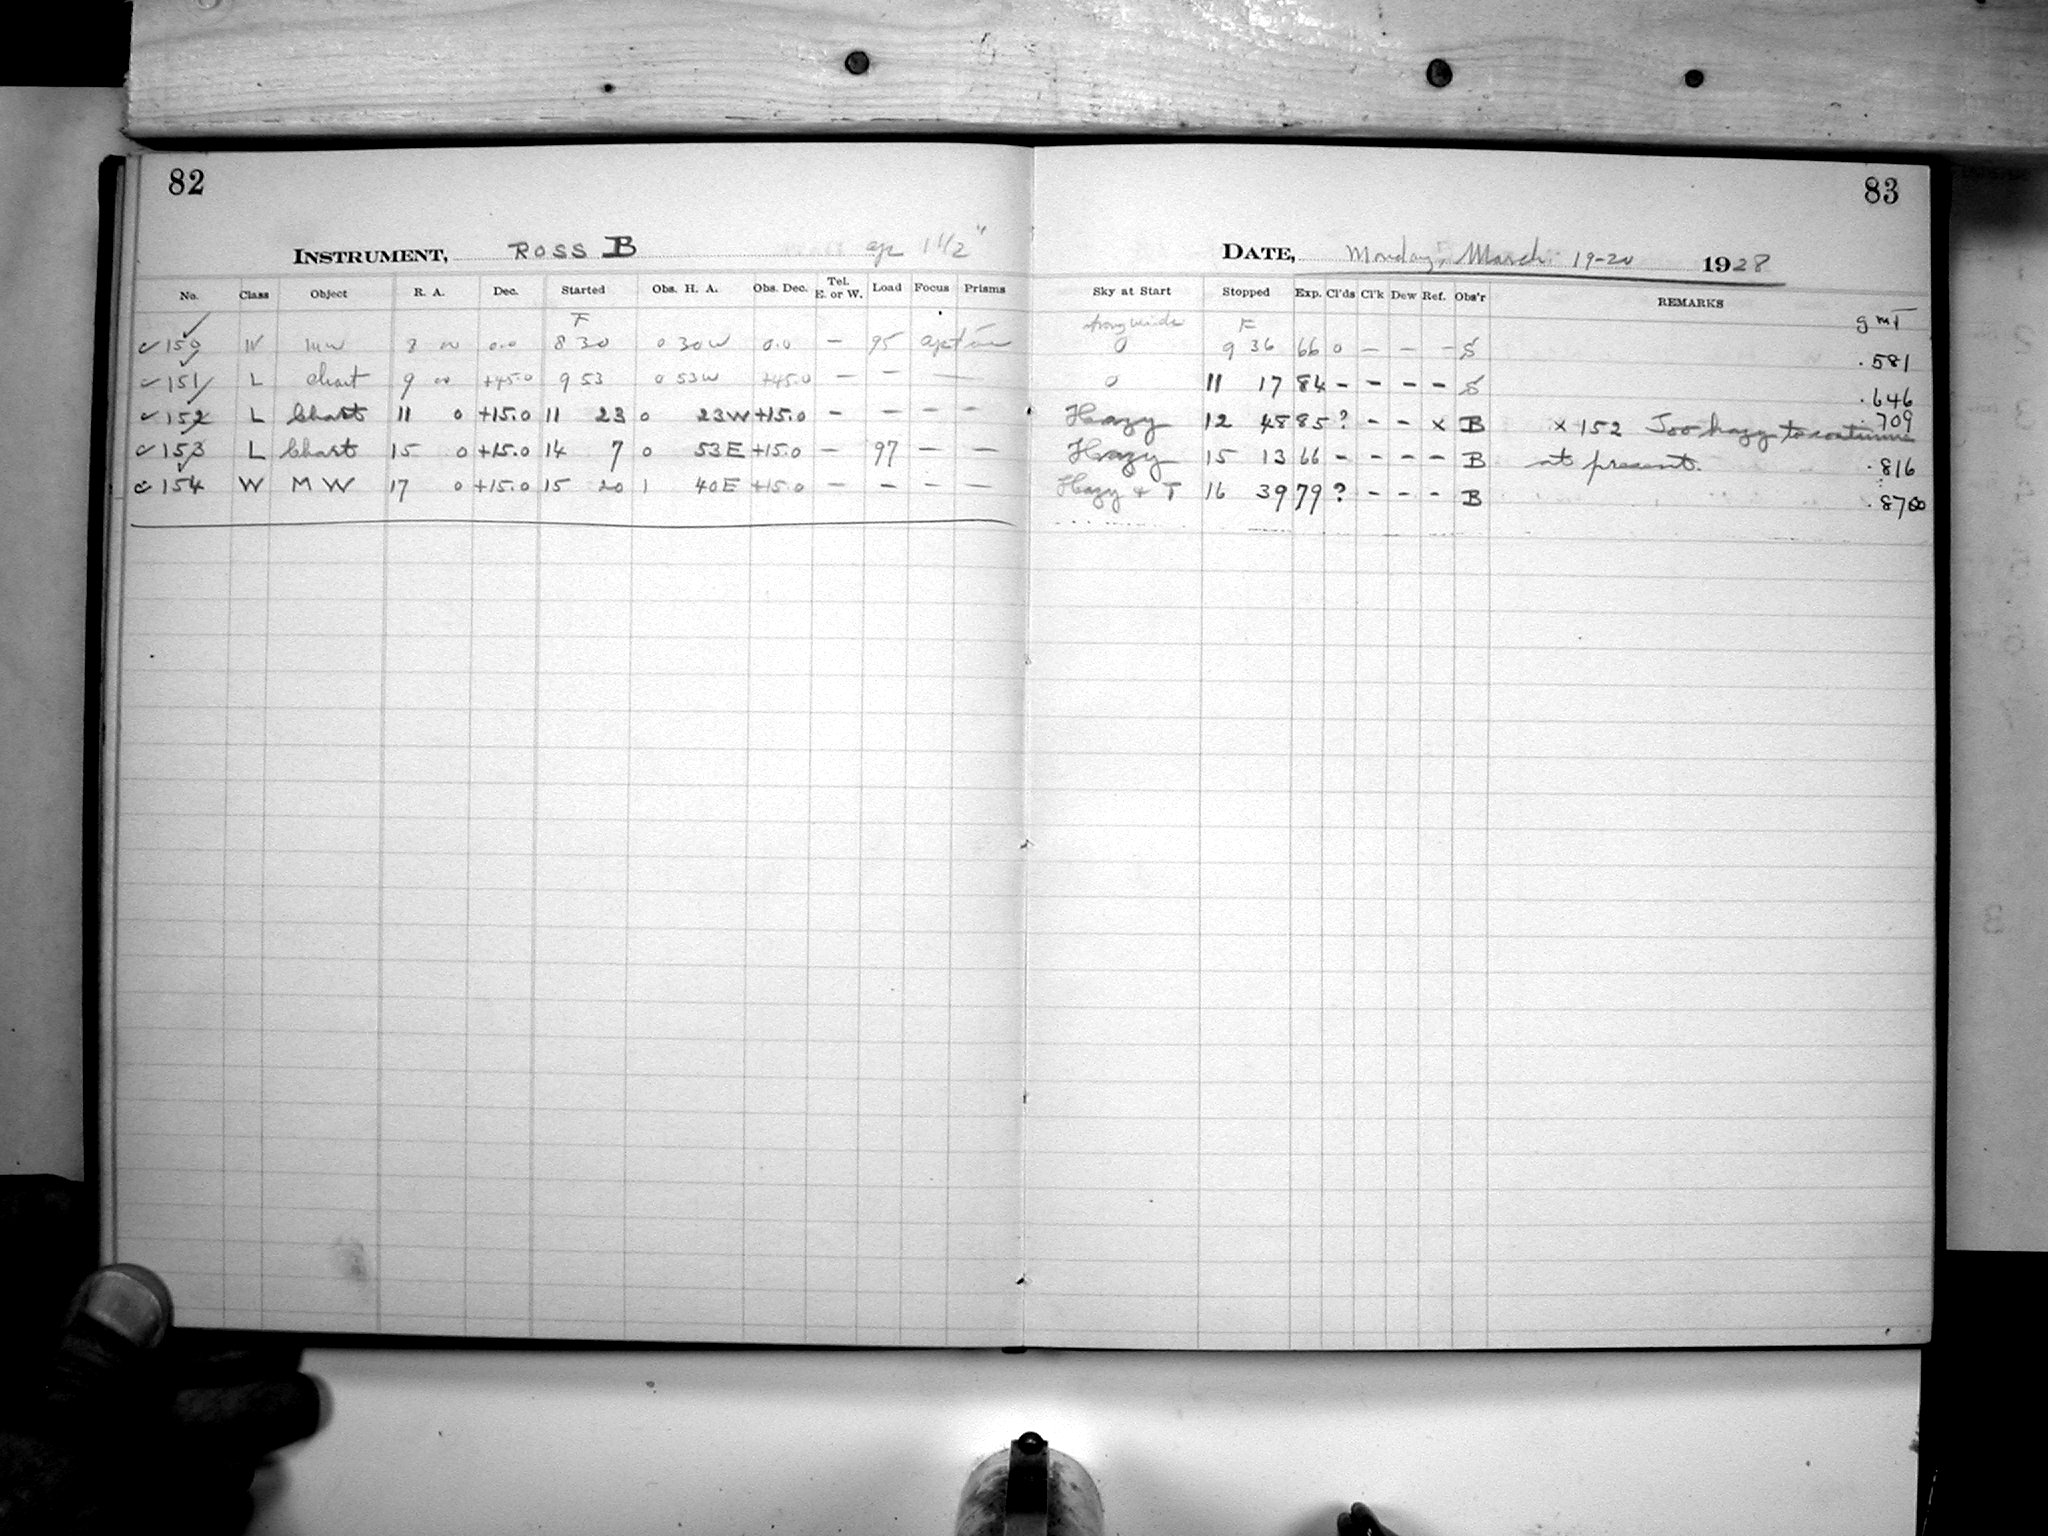 82
INSTRUMENT, ROSS B ap 1 1/2"
No. Class Object R. A. Dec. Started Obs. H. A. Obs. Dec. Tel. E. or W. Load Focus Prisms
F
✓ 150 W MW 8 00 0.0 8 30 0 30W 0.0 — 95
✓ 151 L Chart 9 00 +45.0 9 53 0 53W +45.0 — — —
✓ 152 L Chart 11 0 +15.0 11 23 0 23W +15.0 — — — —
✓ 153 L Chart 15 0 +15.0 14 7 0 53E +15.0 — 97 — —
✓ 154 W MW 17 0 +15.0 15 20 1 40E +15.0 — — — —
83
DATE, Monday, March 19-20 1928
Sky at Start Stopped Exp. Cl'ds Cl'k Dew Ref. Obs'r REMARKS
F GMT
0 9 36 66 0 — — — S .581
0 11 17 84 — — — — S .646
Hazy 12 48 85 ? — — x B x 152 Too hazy to continue .709
Hazy 15 13 66 — — — — B at present. .816
Hazy + T 16 39 79 ? — — — B